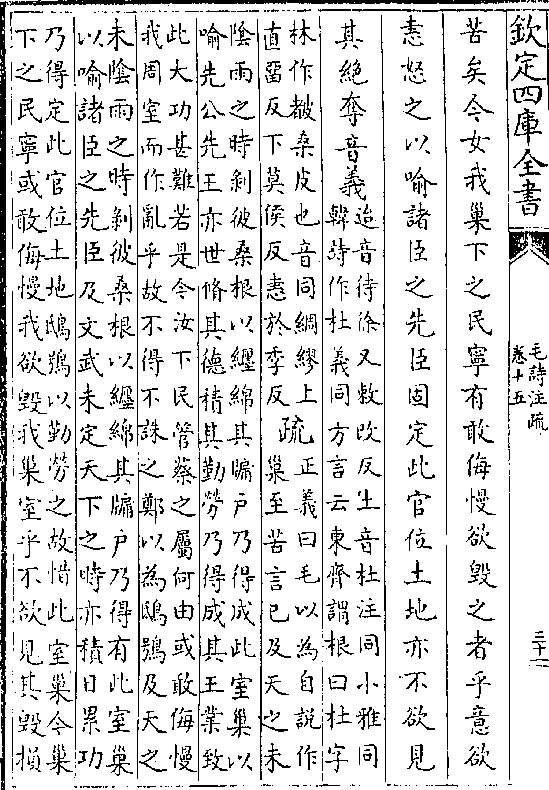 欽定四庫全書
毛詩注疏
卷十五
三十一
苦矣今女我巢下之民寧有敢侮慢欲毁之者乎意欲
恚怒之以喻諸臣之先臣固定此官位土地亦不欲見
其絶奪音義
迨音待徐又敕改反土音杜注同小雅同
韓詩作杜義同方言云東齊謂根曰杜字
林作桑皮也音同綢繆上
直留反下莫侯反恚於季反
疏
正義曰毛以為自説作
巢至苦言已及天之未
陰雨之時剥彼桑根以纏綿其牖户乃得成此室巢以
喻先公先王亦世脩其德積其勤勞乃得成其王業致
此大功甚難若是今汝下民管蔡之屬何由或敢侮慢
我周室而作亂乎故不得不誅之鄭以為鴟鴞及天之
未陰雨之時剥彼桑根以纏綿其牖户乃得有此室巢
以喻諸臣之先臣及文武未定天下之時亦積日累功
乃得定此官位土地鴟鴞以勤勞之故惜此室巢今巢
下之民寧或敢侮慢我欲毁我巢室乎不欲見其毁損